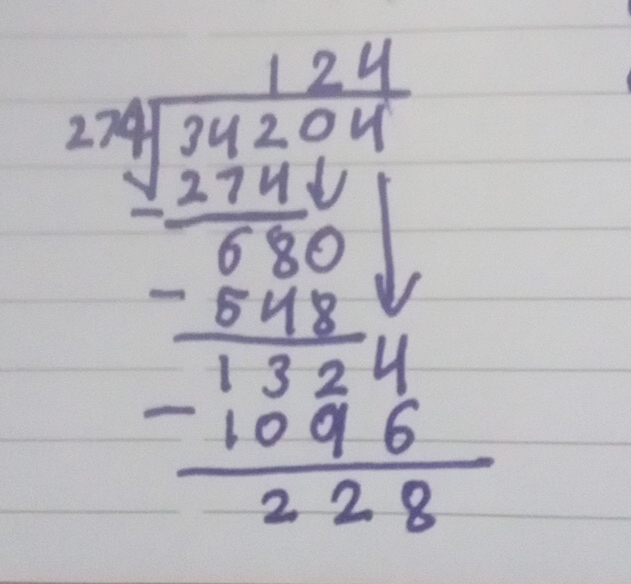 124
274 34204
- 274
680
- 548
1324
- 1096
228